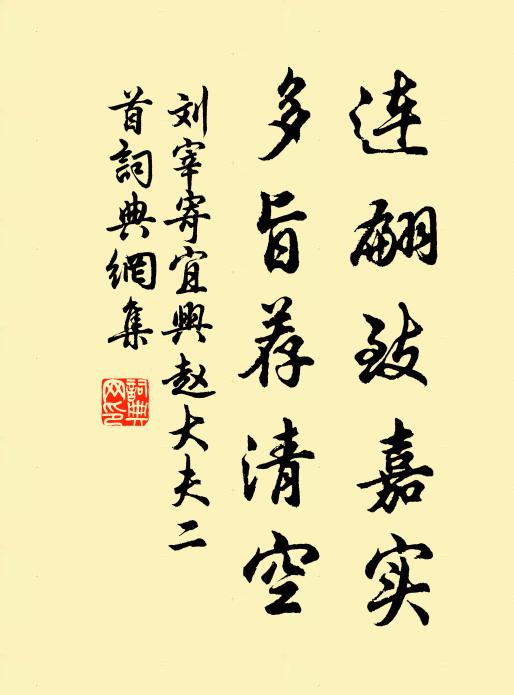 连翩致嘉实
多旨荐清空
刘宰寄宜興赵大夫二
首詞典網集
詞典
网印